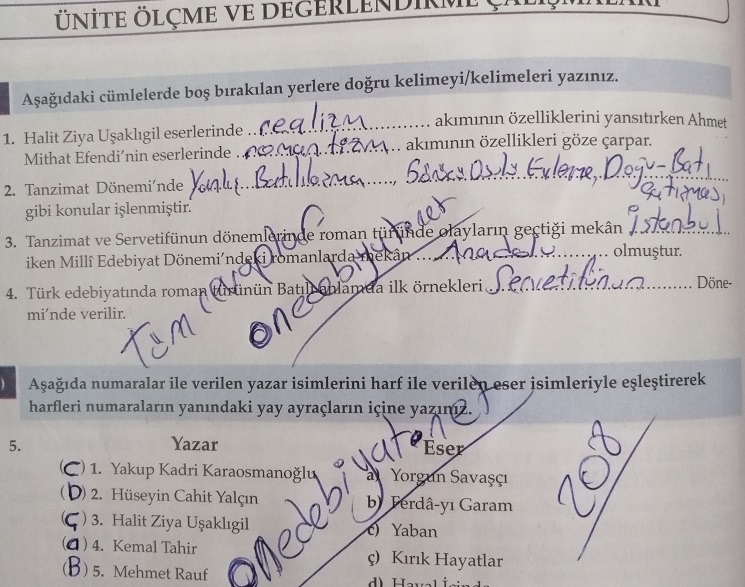 ÜNİTE ÖLÇME VE DEĞERLENDİRME ÇALIŞMALARI
Aşağıdaki cümlelerde boş bırakılan yerlere doğru kelimeyi/kelimeleri yazınız.
1. Halit Ziya Uşaklıgil eserlerinde ..realizm.......... akımının özelliklerini yansıtırken Ahmet
Mithat Efendi'nin eserlerinde ..romantizm.. akımının özellikleri göze çarpar.
2. Tanzimat Dönemi'nde Yanlış Batılılaşma....., Görücü Usulü Evlenme, Doğu-Batı
çatışması,
gibi konular işlenmiştir.
3. Tanzimat ve Servetifünun dönemlerinde roman türünde olayların geçtiği mekân İstanbul...
iken Millî Edebiyat Dönemi'ndeki romanlarda mekân ...Anadolu......... olmuştur.
4. Türk edebiyatında roman türünün Batılı anlamda ilk örnekleri Servetifünun.......... Döne-
mi'nde verilir.
Tüm cevaplar
onedebiyat.net
Aşağıda numaralar ile verilen yazar isimlerini harf ile verilen eser isimleriyle eşleştirerek
harfleri numaraların yanındaki yay ayraçların içine yazınız.
5. Yazar Eser
(C) 1. Yakup Kadri Karaosmanoğlu a) Yorgun Savaşçı
(D) 2. Hüseyin Cahit Yalçın b) Ferdâ-yı Garam
(Ç) 3. Halit Ziya Uşaklıgil c) Yaban
(a) 4. Kemal Tahir ç) Kırık Hayatlar
(B) 5. Mehmet Rauf d) Hayal İçinde
onedebiyat.net
208